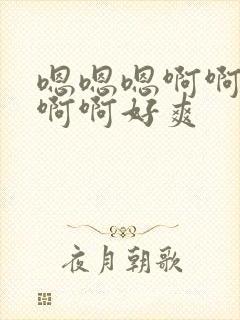 嗯嗯嗯啊啊
啊啊好爽
夜月朝歌